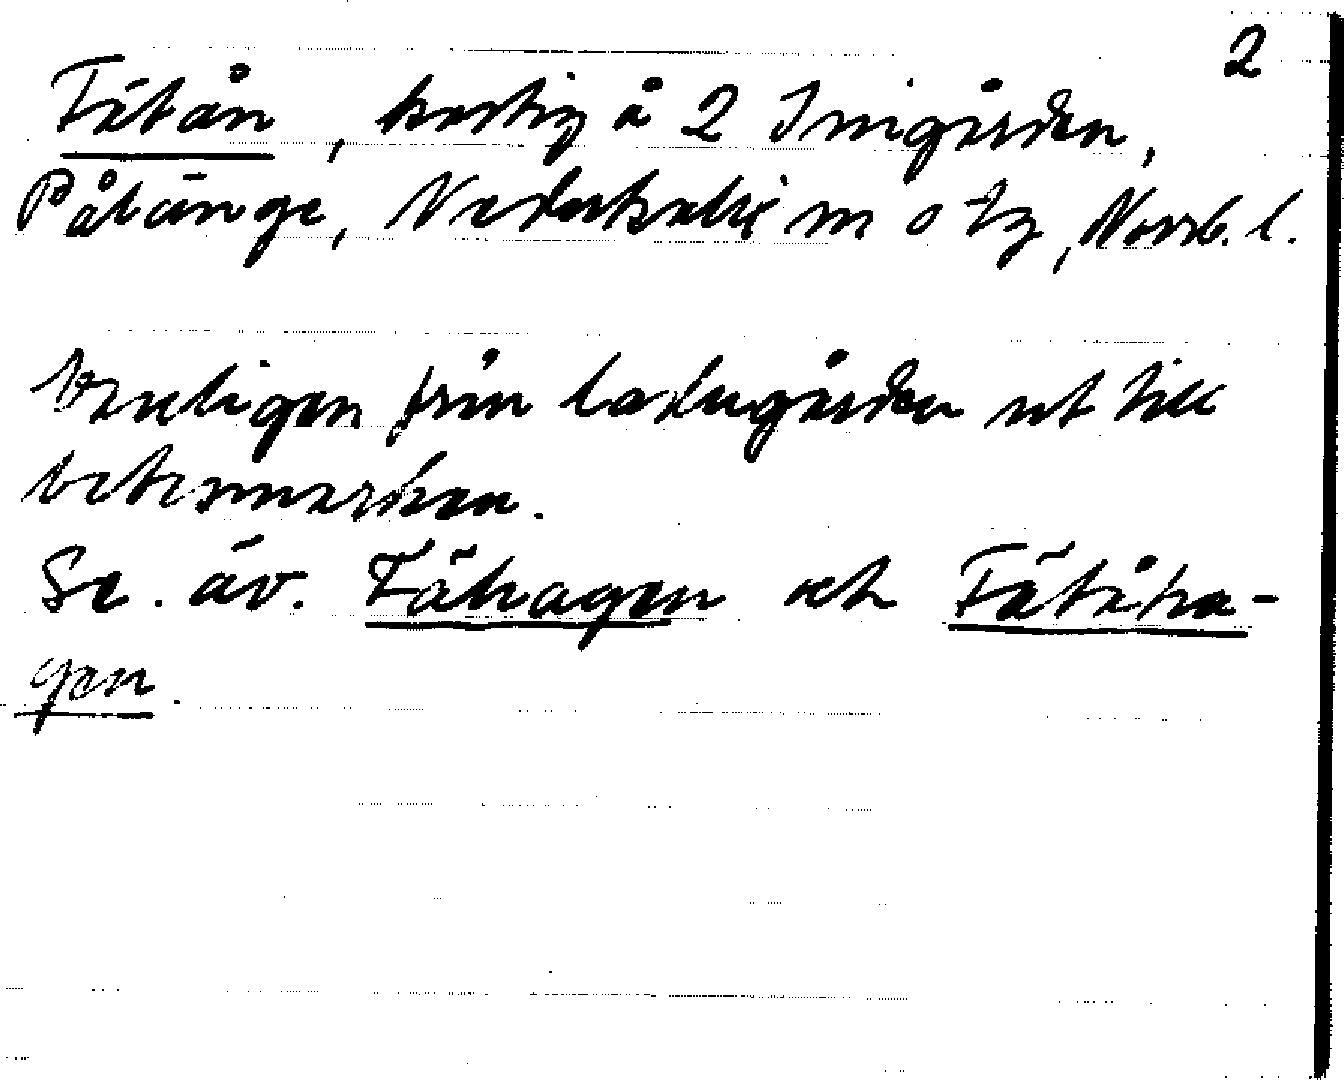 2
Fätån, kostig å 2 Inigården,
Pålänge, Nederkalix sn o tg, Norrb. l.
Vanligen från ladugården ut till
betesmarken.
Se. äv. Fähagen och Fätåha-
gen.